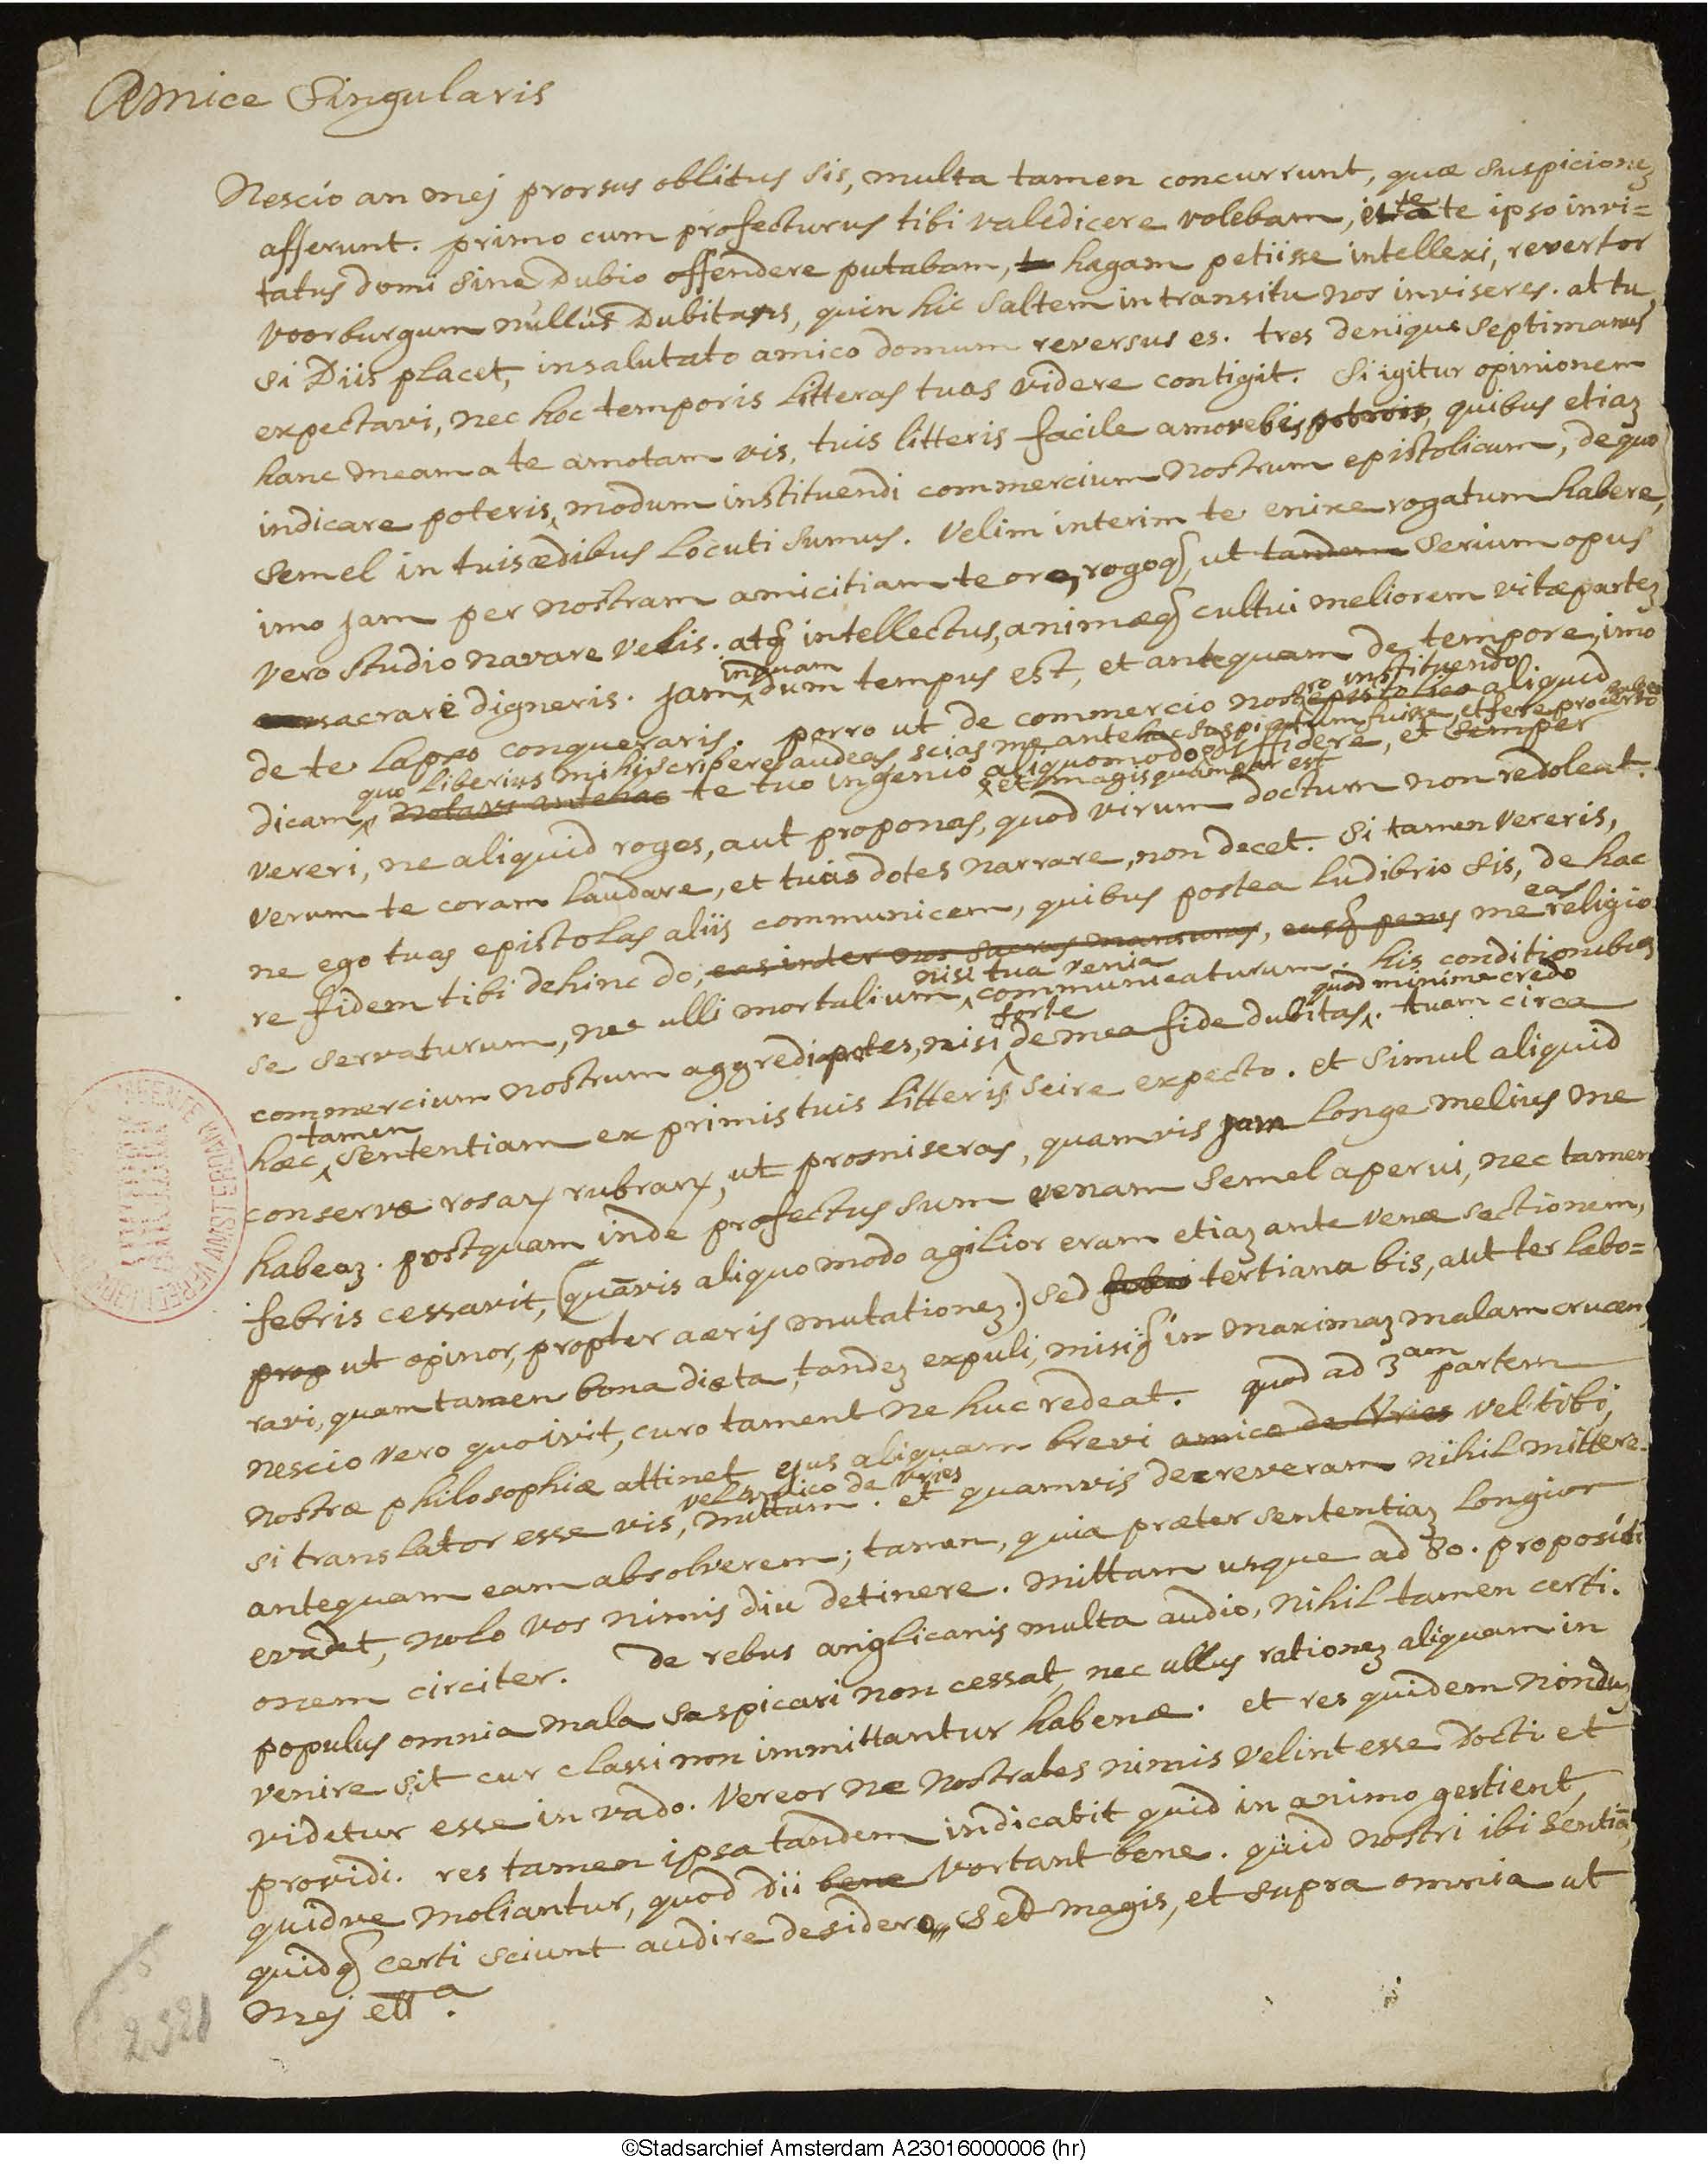 Amice Singularis
Nescio an mej prorsus oblitus sis, multa tamen concurrunt, quæ suspicionem
afferunt. primo cum profecturus tibi valedicere volebam, te te ipso invi=
tatus domi sine dubio offendere putabam, hagam petiisse intellexi, revertor
voorburgum nullus dubitans, quin hic saltem in transitu nos inviseres. at tu,
si Diis placet, insalutato amico domum reversus es. tres denique septimanas
expectavi, nec hoc temporis litteras tuas videre contigit. Si igitur opinionem
hanc meam a te amotam vis, tuis litteris facile amovebis, quibus etiam
indicare poteris, modum instituendi commercium nostrum epistolicum, de quo
semel in tuis ædibus locuti sumus. Velim interim te enixe rogatum habere,
imo jam per nostram amicitiam te oro, rogoq, ut tandem serium opus
vero studio navare velis. atq intellectus, animæq cultui meliorem vitæ partem
sacrare digneris. jam inquam dum tempus est, et antequam de tempore, imo
de te lapso conqueraris. porro ut de commercio nostro instituendo aliquid
dicam quo liberius mihi scribere audeas, scias me antehac suspicatum fuisse, et fere pro certo
te tuo ingenio aliquomodo diffidere, et semper et magis quam par est
vereri, ne aliquid roges, aut proponas, quod virum doctum non redoleat.
verum te coram laudare, et tuas dotes narrare, non decet. Si tamen vereris,
ne ego tuas epistolas aliis communicem, quibus postea ludibrio sis, de hac
re fidem tibi dehinc do, eas inter nos sacras mansuras, easq penes me eas religio
se servaturum, nec ulli mortalium nisi tua venia communicaturum. his conditionibus
commercium nostrum aggredi potes, nisi forte de mea fide dubitas, quod minime credo. tuam circa
hæc tamen sententiam ex primis tuis litteris scire expecto. et simul aliquid
conservæ rosar rubrar, ut promiseras, quamvis jam longe melius me
habeam. postquam inde profectus sum venam semel aperui, nec tamen
febris cessavit, (quāvis aliquo modo agilior eram etiam ante venæ sectionem,
prop ut opinor, propter aeris mutationem.) sed tertiana bis, aut ter labo=
ravi, quam tamen bona diæta, tandem expuli, misiq in maximam malam crucem
nescio vero quo ivit, curo tament ne huc redeat. quod ad 3am partem
nostræ philosophiæ attinet, ejus aliquam brevi amico de Vries vel tibi,
si translator esse vis, vel amico de vries mittam. et quamvis decreveram nihil mittere
antequam eam absolverem; tamen, quia præter sententiam longior
evadet, nolo vos nimis diu detinere. mittam usque ad 80. propositi
onem circiter. De rebus anglicanis multa audio, nihil tamen certi.
populus omnia mala suspicari non cessat, nec ullus rationem aliquam in
venire sit cur classi non immittantur habenæ. et res quidem nondum
videtur esse in vado. Vereor ne nostrates nimis velint esse docti et
providi. res tamen ipsa tandem indicabit quid in animo gestient,
quidve moliantur, quod dii bene vortant bene. quid nostri ibi sentiā
quidq certi sciunt audire desidero, sed magis, et supra omnia ut
mej etta.
2521
©Stadsarchief Amsterdam A23016000006 (hr)